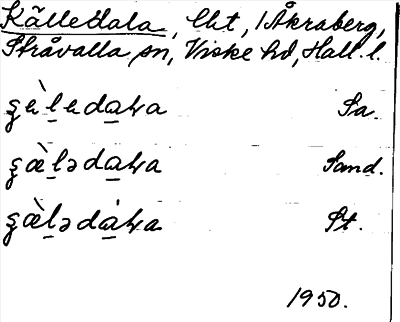 Källedala, lht, i Åkraberg,
Stråvalla sn, Viske hd, Hall. l.
ʂèl̲edaɽa Sa.
ʂæ̀l̲ədaɽa Sand.
ʂæ̀l̲ədàɽa St.
1950.